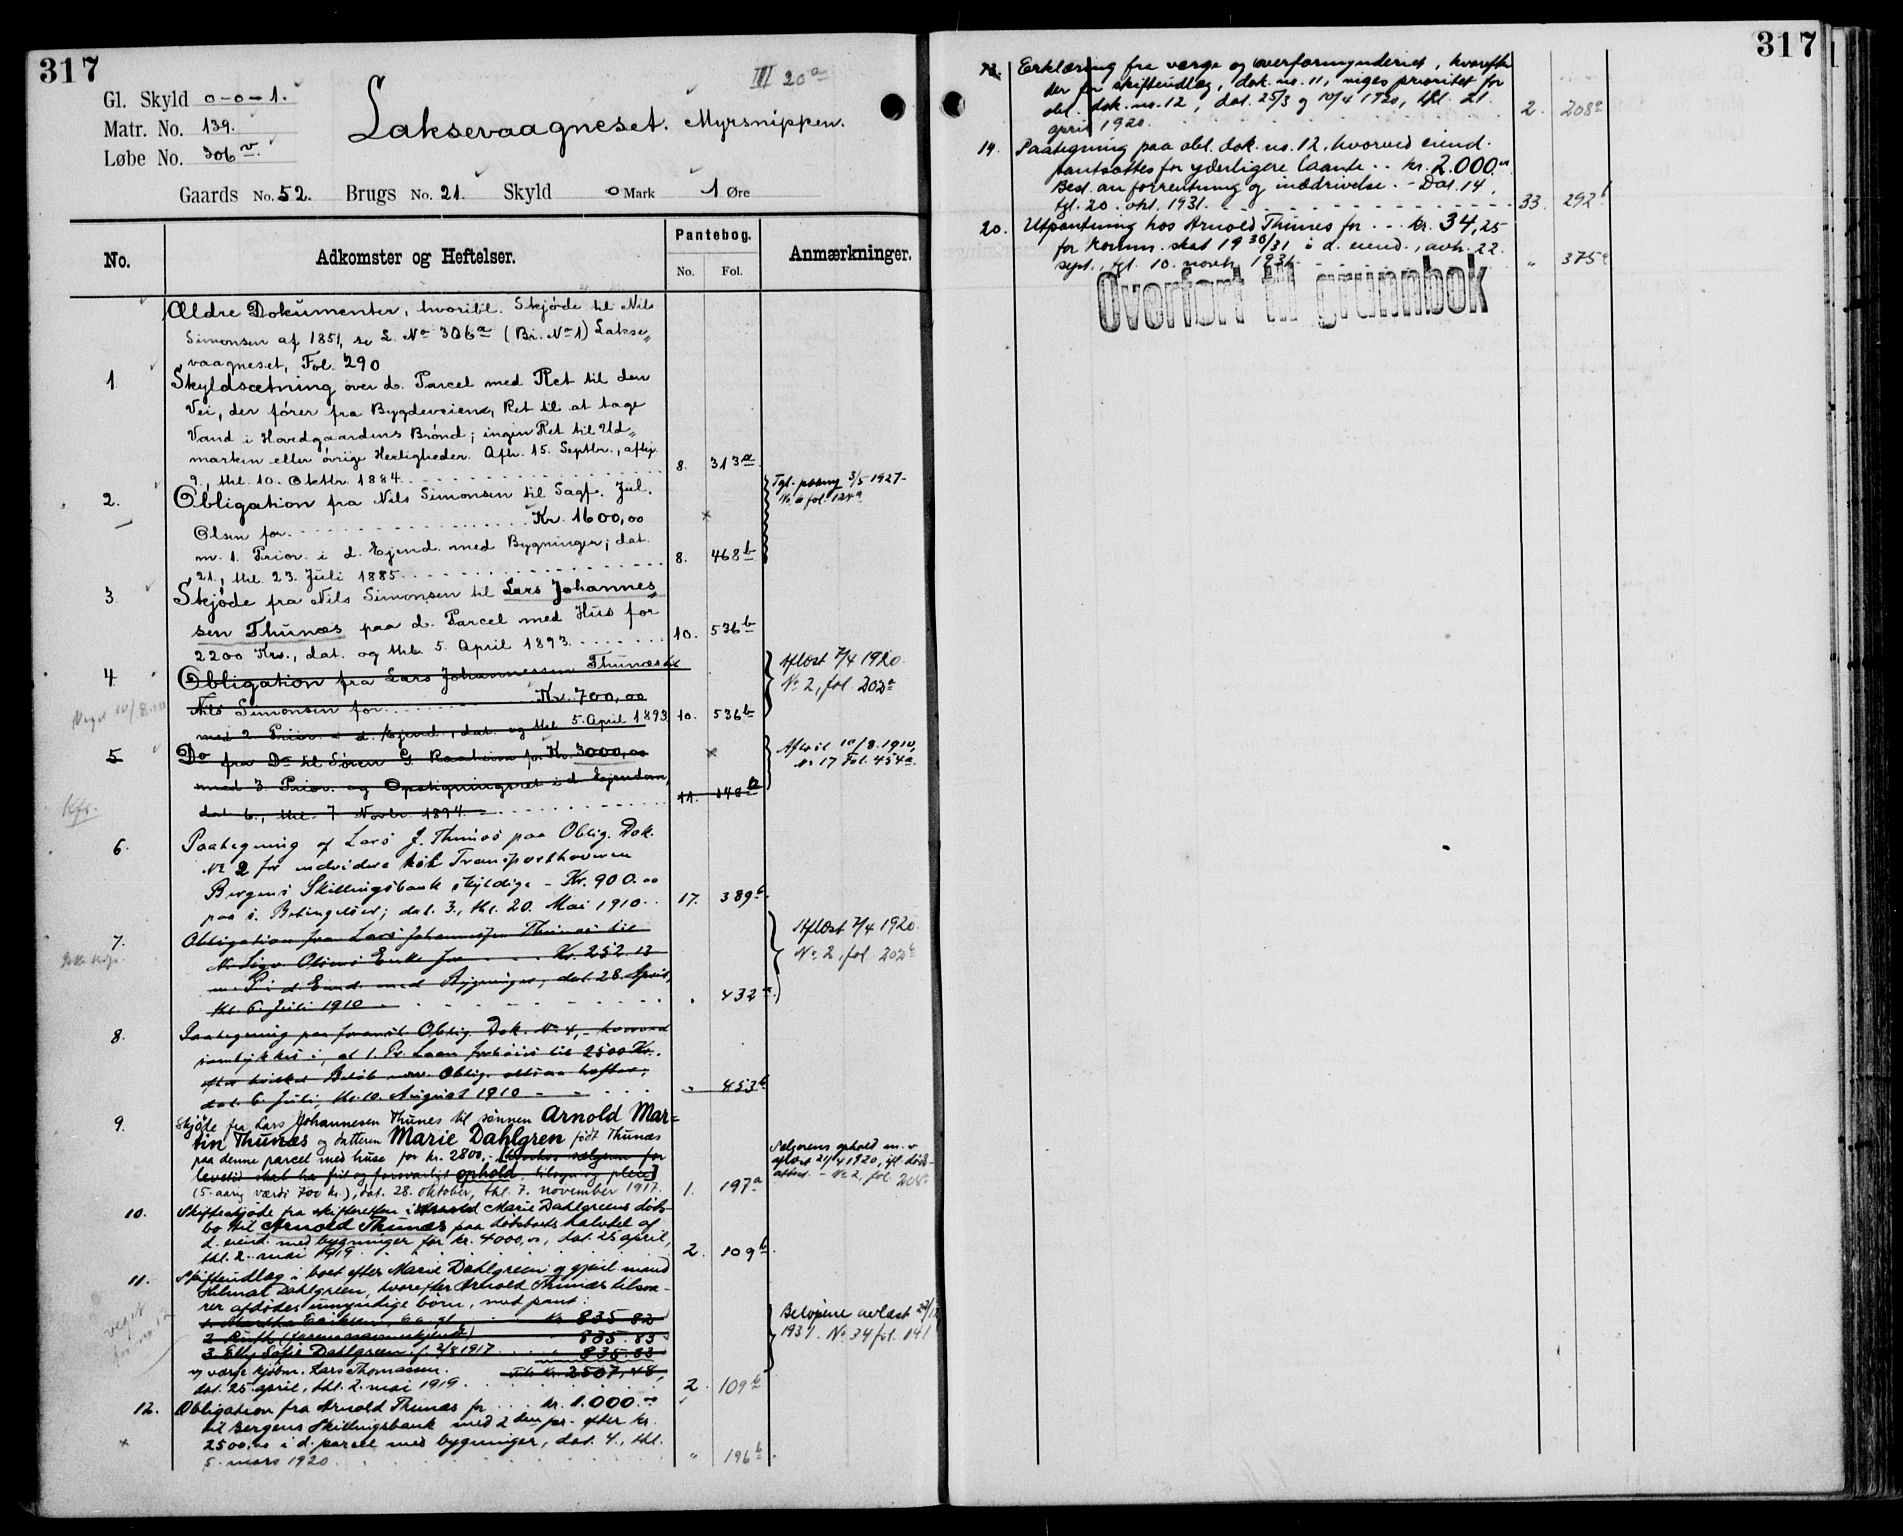 317
III 20a
Gl. Skyld 0-0-1.
Matr. No. 139.
Løbe No. 306 v.
Laksevaagneset. Myrsnippen.
Gaards No. 52. Brugs No. 21. Skyld 0 Mark 1 Øre
No.
Adkomster og Heftelser.
Pantebog.
No. Fol.
Anmærkninger.
Ældre Dokumenter, hvoribl. Skjøde til Nils
Simonsen af 1851, se L. No 306a (Br. No 1) Lakse„
vaagneset, Fol. 290
1 Skyldsætning over d. Parcel med Ret til den
Vei, der fører fra Bygdeveiene, Ret til at tage
Vand i Hovedgaardens Brønd; ingen Ret til Ud„
marken eller øvrige Herligheder. Afh. 15. Septbr., afhj.
9., thl. 10. Oktbr. 1884. 8. 313a
2. Obligation fra Nils Simonsen til Sagf. Jul.
Olsen for Kr. 1600,00
m. 1. Prior. i d. Ejend. med Bygninger; dat.
21., thl. 23. Juli 1885. 8. 468b
Tgl. 3/5 1927.
fol. 124a
3 Skjøde fra Nils Simonsen til Lars Johannes„
sen Thunæs paa d. Parcel med Hus for
2200 Kr., dat. og thl. 5. April 1893. 10. 536b
4. Obligation fra Lars Johannessen Thunæs til
Nils Simonsen for Kr. 700,00
med 2 Prior. i d. Ejend., dat. og thl. 5. April 1893. 10. 536b
Aflæst 7/4 1920.
No 2, fol 202a
Veget 10/8.10
5 Do fra Do til Søren G. Raaheim for Kr. 3000,00
med 3 Prior. og Opsigningsret i d. Ejendom,
dat. 6., thl. 7 Novbr. 1894. 11. 148b
Aflæst 10/8.1910,
No 17 Fol. 454a.
6. Paategning af Lars J. Thunæs paa Oblig. Dok.
No 2 for endvidere hos Transporthaveren
Bergens Skillingsbank skyldige - Kr. 900.00
paa s. Betingelser; dat. 3., thl. 20. Mai 1910. 17. 389b
7. Obligation fra Lars Johannessen Thunæs til
N. Sigv. Olsens Enke for Kr. 252.13
m. P. i d. Eiend. med Bygninger, dat. 28. April,
thl. 6. Juli 1910 " 432a
Aflæst 7/4 1920.
No 2, fol 202b
8. Paategning paa foranst. Oblig. Dok. No 4, hvorved
samtykkes i, at 1. Pr. Laan forhøies til 2500 Kr.
efter hvilket Beløb nærv. Oblig. altsaa hefter;
dat. 6. Juli, thl. 10. August 1910 " 453b
9. Skjøde fra Lars Johannesen Thunes til sønnen Arnold Mar=
tin Thunæs og datteren Marie Dahlgren født Thunæs
paa denne parcel med huse for kr. 2800,- [hvorhos sælgeren for
levetid skal ha frit og forsvarligt ophold, tilsyn og pleie]
(5-aarig værdi 700 kr.), dat. 28. oktober, thl. 7. november 1917. 1. 197a
Selgerens ophold m.v.
aflæst 21/4 1920, ifl. døds-
attest. - No 2, fol. 208a
10. Skifteskjøde fra skifteretten i Marie Dahlgreens døds-
bo til Arnold Thunæs paa dødsboets halvdel af
d. eiend. med bygninger for kr. 4000,00, dat. 25 april,
thl. 2. mai 1919. 2. 109b
11. Skifteudlæg i boet efter Marie Dahlgreen og gjenl. mand
Hilmar Dahlgreen, hvorefter Arnold Thunæs tilsva-
rer afdødes umyndige børn, mot pant:
1. Martha Eriksen, kr. 835 82
2 Ruth " 835.83
3 Elly Sofie Dahlgreen f. 2/8 1917 " 835.83
og værge kjøbm. Lars Thomassen. Tils. kr. 2507,48,
dat. 25 april, thl. 2. mai 1919. 2. 109b
Beløpene avlæst
1931. No 34 fol. 141
veget
for no 12
12. Obligation fra Arnold Thunæs for kr. 1.000.00
til Bergens Skillingsbank med 2den pr. efter kr.
2500,00 i d. parcel med bygninger, dat. 4., thl.
5. mars 1920. " 196b
317
13. Erklæring fra værge og overformynderiet, hvorefter
der for skifteudlæg, dok. no. 11, viges prioritet for
obl. dok. no. 12, dat. 25/3 og 10/4 1920, thl. 21.
april 1920. 2. 208a
19. Paategning paa obl. dok. no. 12, hvorved eiend.
pantsættes for yderligere laante kr. 2.000.00
Best. an forrentning og inddrivelse. - Dat. 14,
tgl. 20. okt. 1931. 33. 292b
20. Utpantning hos Arnold Thunes for kr. 34,25
for komm. skat 1930/31 i d. eiend., avh. 22.
sept., tgl. 10. novbr. 1931. " 375a
Overført til grunnbok